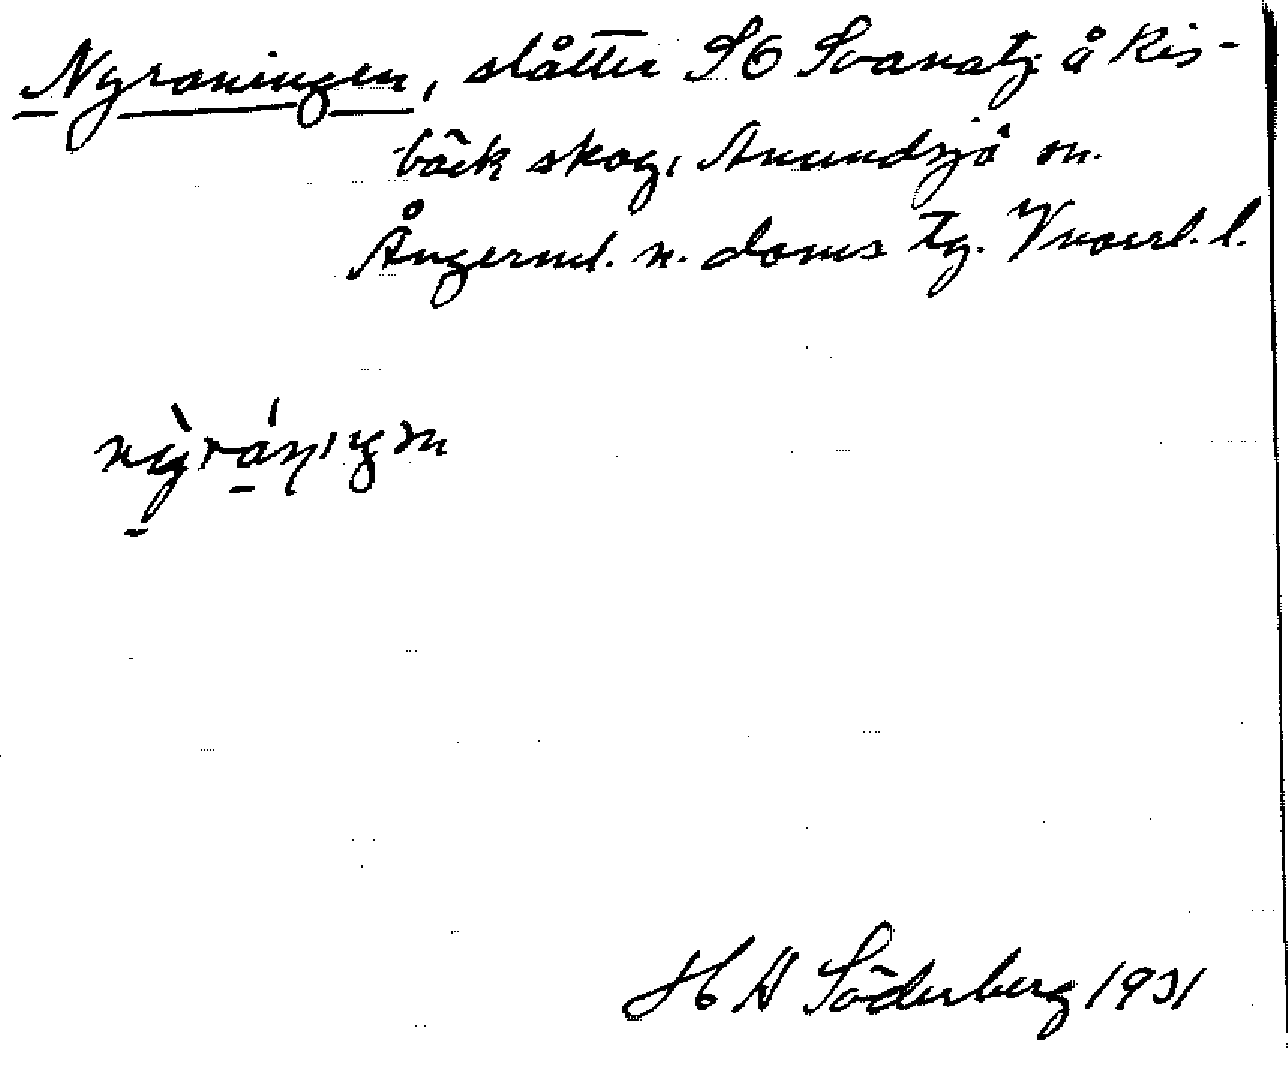 Nyraningen, slåtter SO Svanatj å Kis-
bäck skog, Anundsjö sn.
Ångerml. n. doms tg. Vnorrl. l.
H A Söderberg 1931